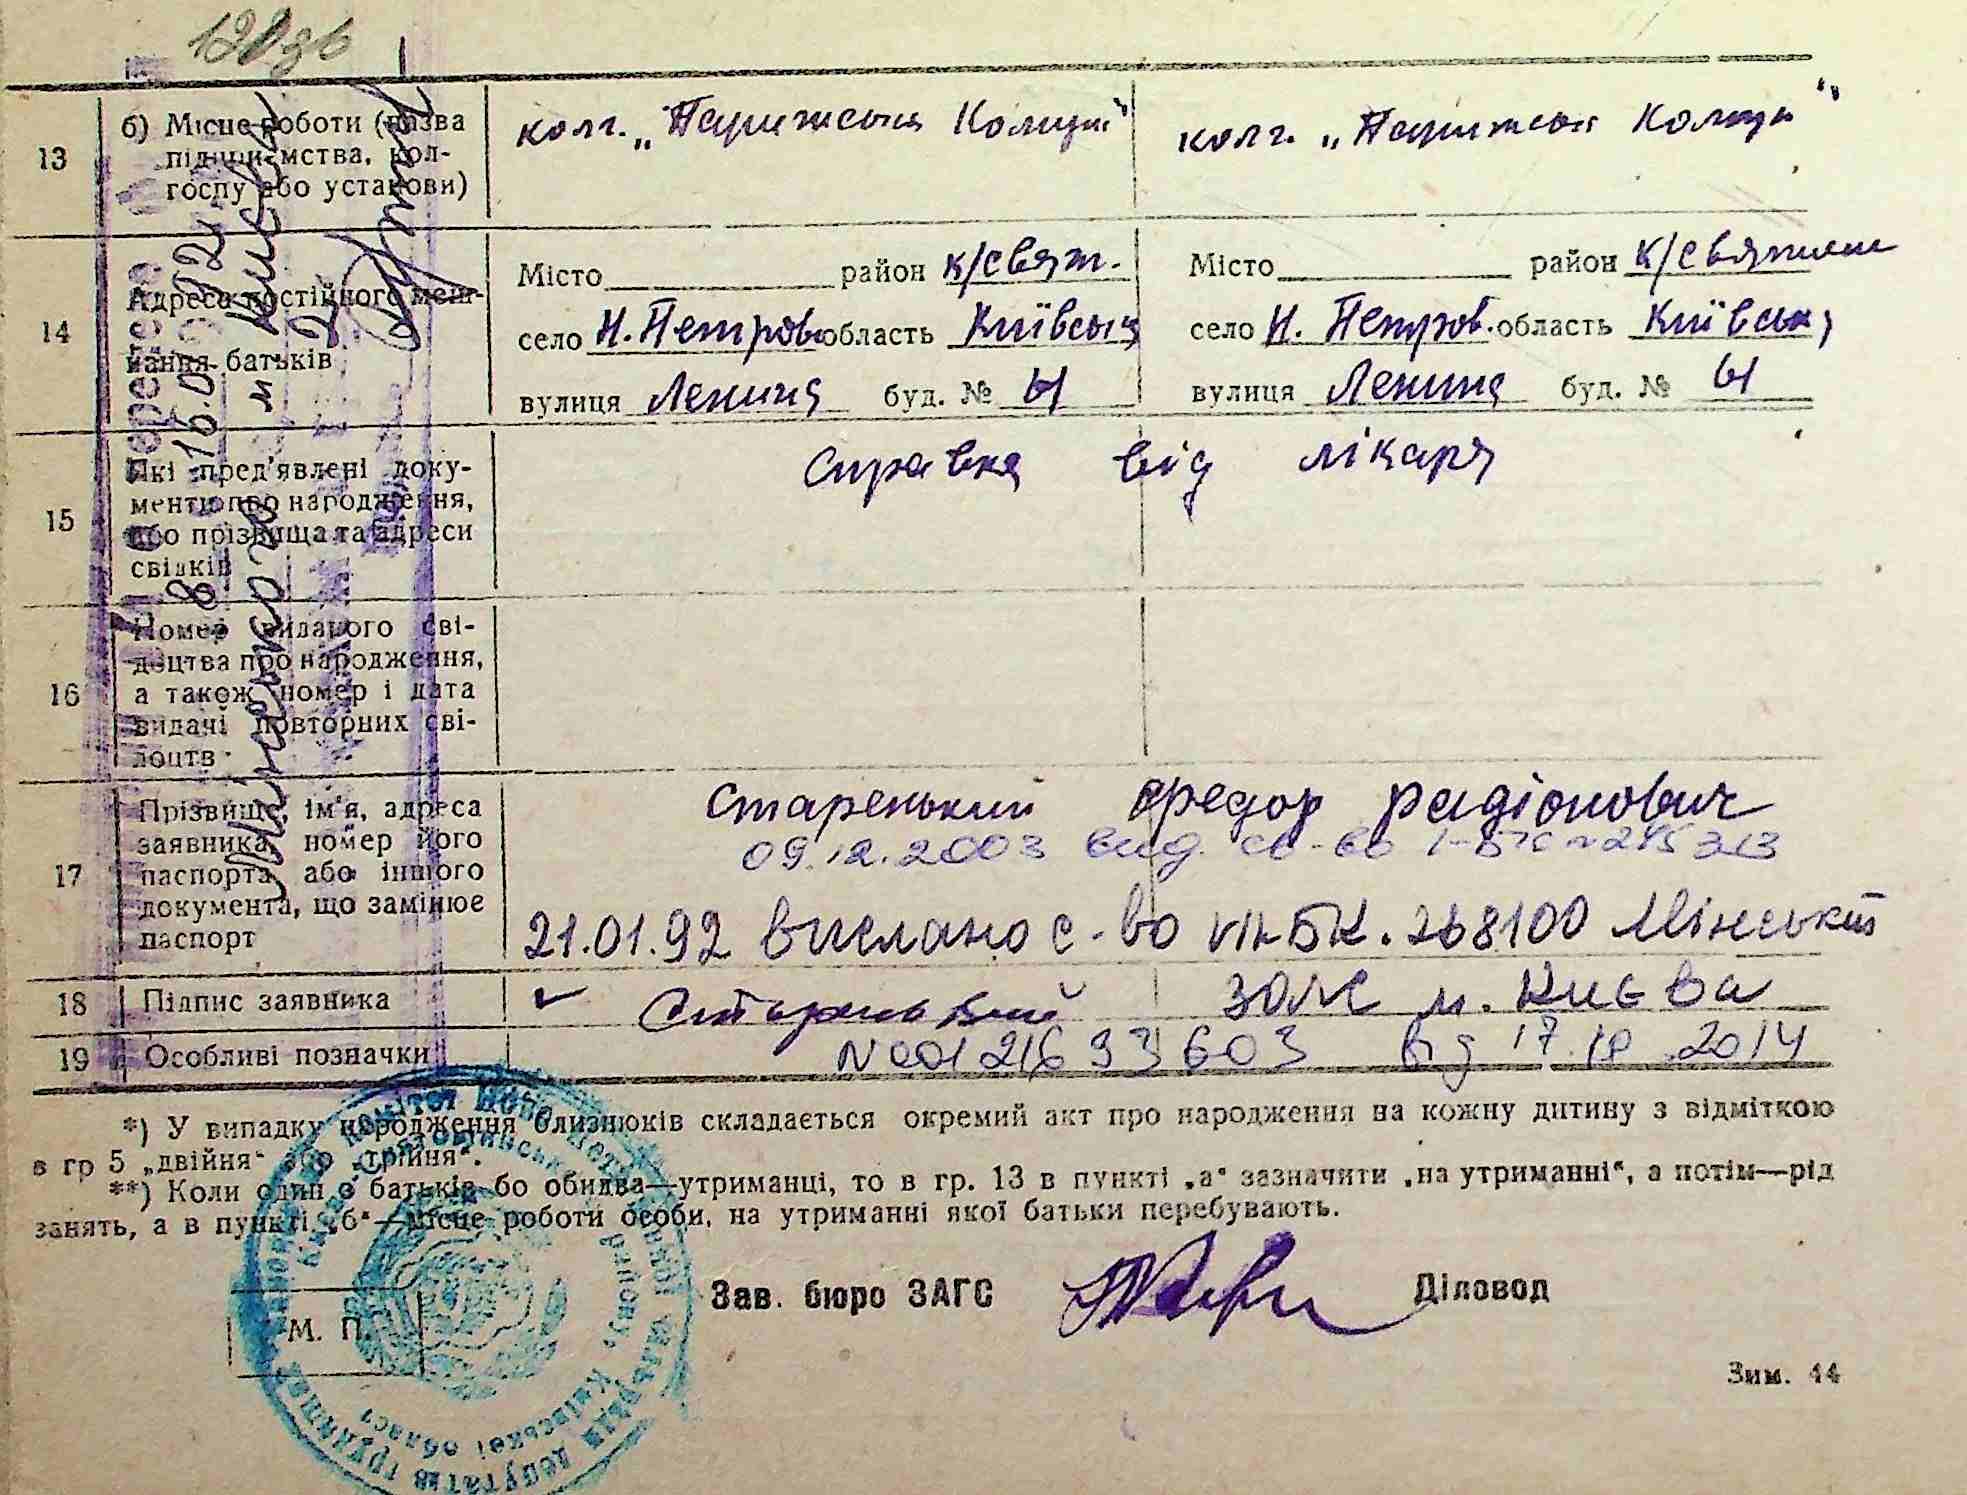 13
б) Місце роботи (назва
підприємства, кол-
госпу або установи)
колг. „Паризька Комуна"
колг. „Паризька Комуна"
14
Адреса постійного меш-
кання батьків
Місто район К/Свят.
село Н. Петрів. область Київська
вулиця Леніна буд. № 61
Місто район К/Святошин
село Н. Петров. область Київська
вулиця Леніна буд. № 61
15
Які пред'явлені доку-
менти про народження,
або прізвища та адреси
свідків
справка від лікаря
16
Номер виданого сві-
доцтва про народження,
а також номер і дата
видачі повторних сві-
доцтв
17
Прізвище, ім'я, адреса
заявника, номер його
паспорта або іншого
документа, що замінює
паспорт
Старенький Федор Радіонович
09.12.2003 вид. св-во 1-БК № 245313
21.01.92 вислано с-во БК. 268100 Мінський
18 Підпис заявника
Старенький ЗАГС м. Києва
19 Особливі позначки
N 00121693603 від 17.10.2014
*) У випадку народження близнюків складається окремий акт про народження на кожну дитину з відміткою
в гр 5 „двійня" або „трійня".
**) Коли один з батьків або обидва—утриманці, то в гр. 13 в пункті „а" зазначити „на утриманні", а потім—рід
занять, а в пункті „б"—місце роботи особи, на утриманні якої батьки перебувають.
Зав. бюро ЗАГС
Діловод
М. П.
Зим. 44